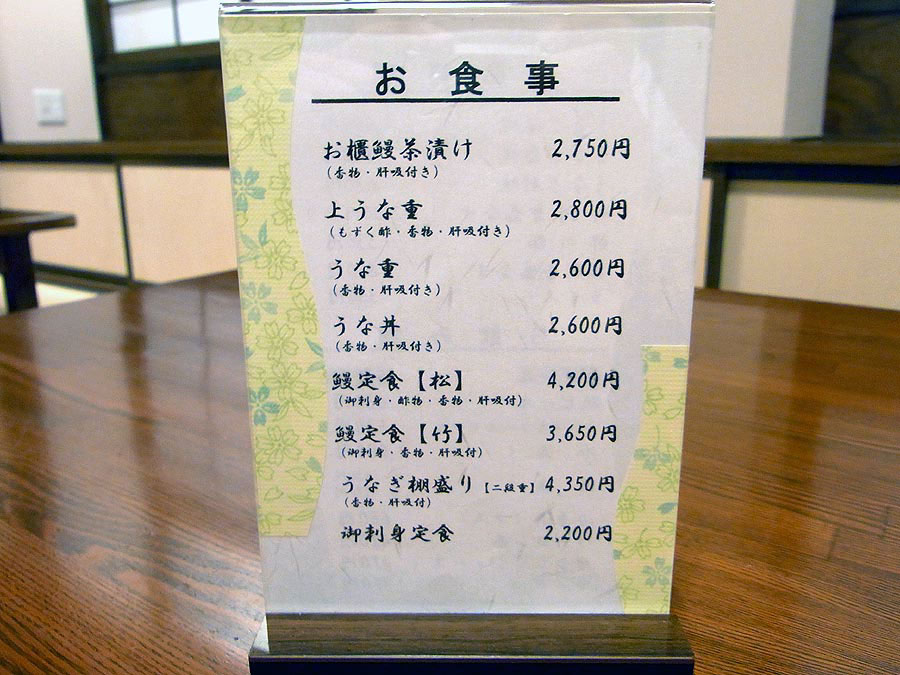 お食事
お櫃鰻茶漬け 2,750円
(香物・肝吸付き)
上うな重 2,800円
(もずく酢・香物・肝吸付き)
うな重 2,600円
(香物・肝吸付き)
うな丼 2,600円
(香物・肝吸付き)
鰻定食【松】 4,200円
(御刺身・酢物・香物・肝吸付き)
鰻定食【竹】 3,650円
(御刺身・香物・肝吸付き)
うなぎ棚盛り【二段重】 4,350円
(香物・肝吸付)
御刺身定食 2,200円